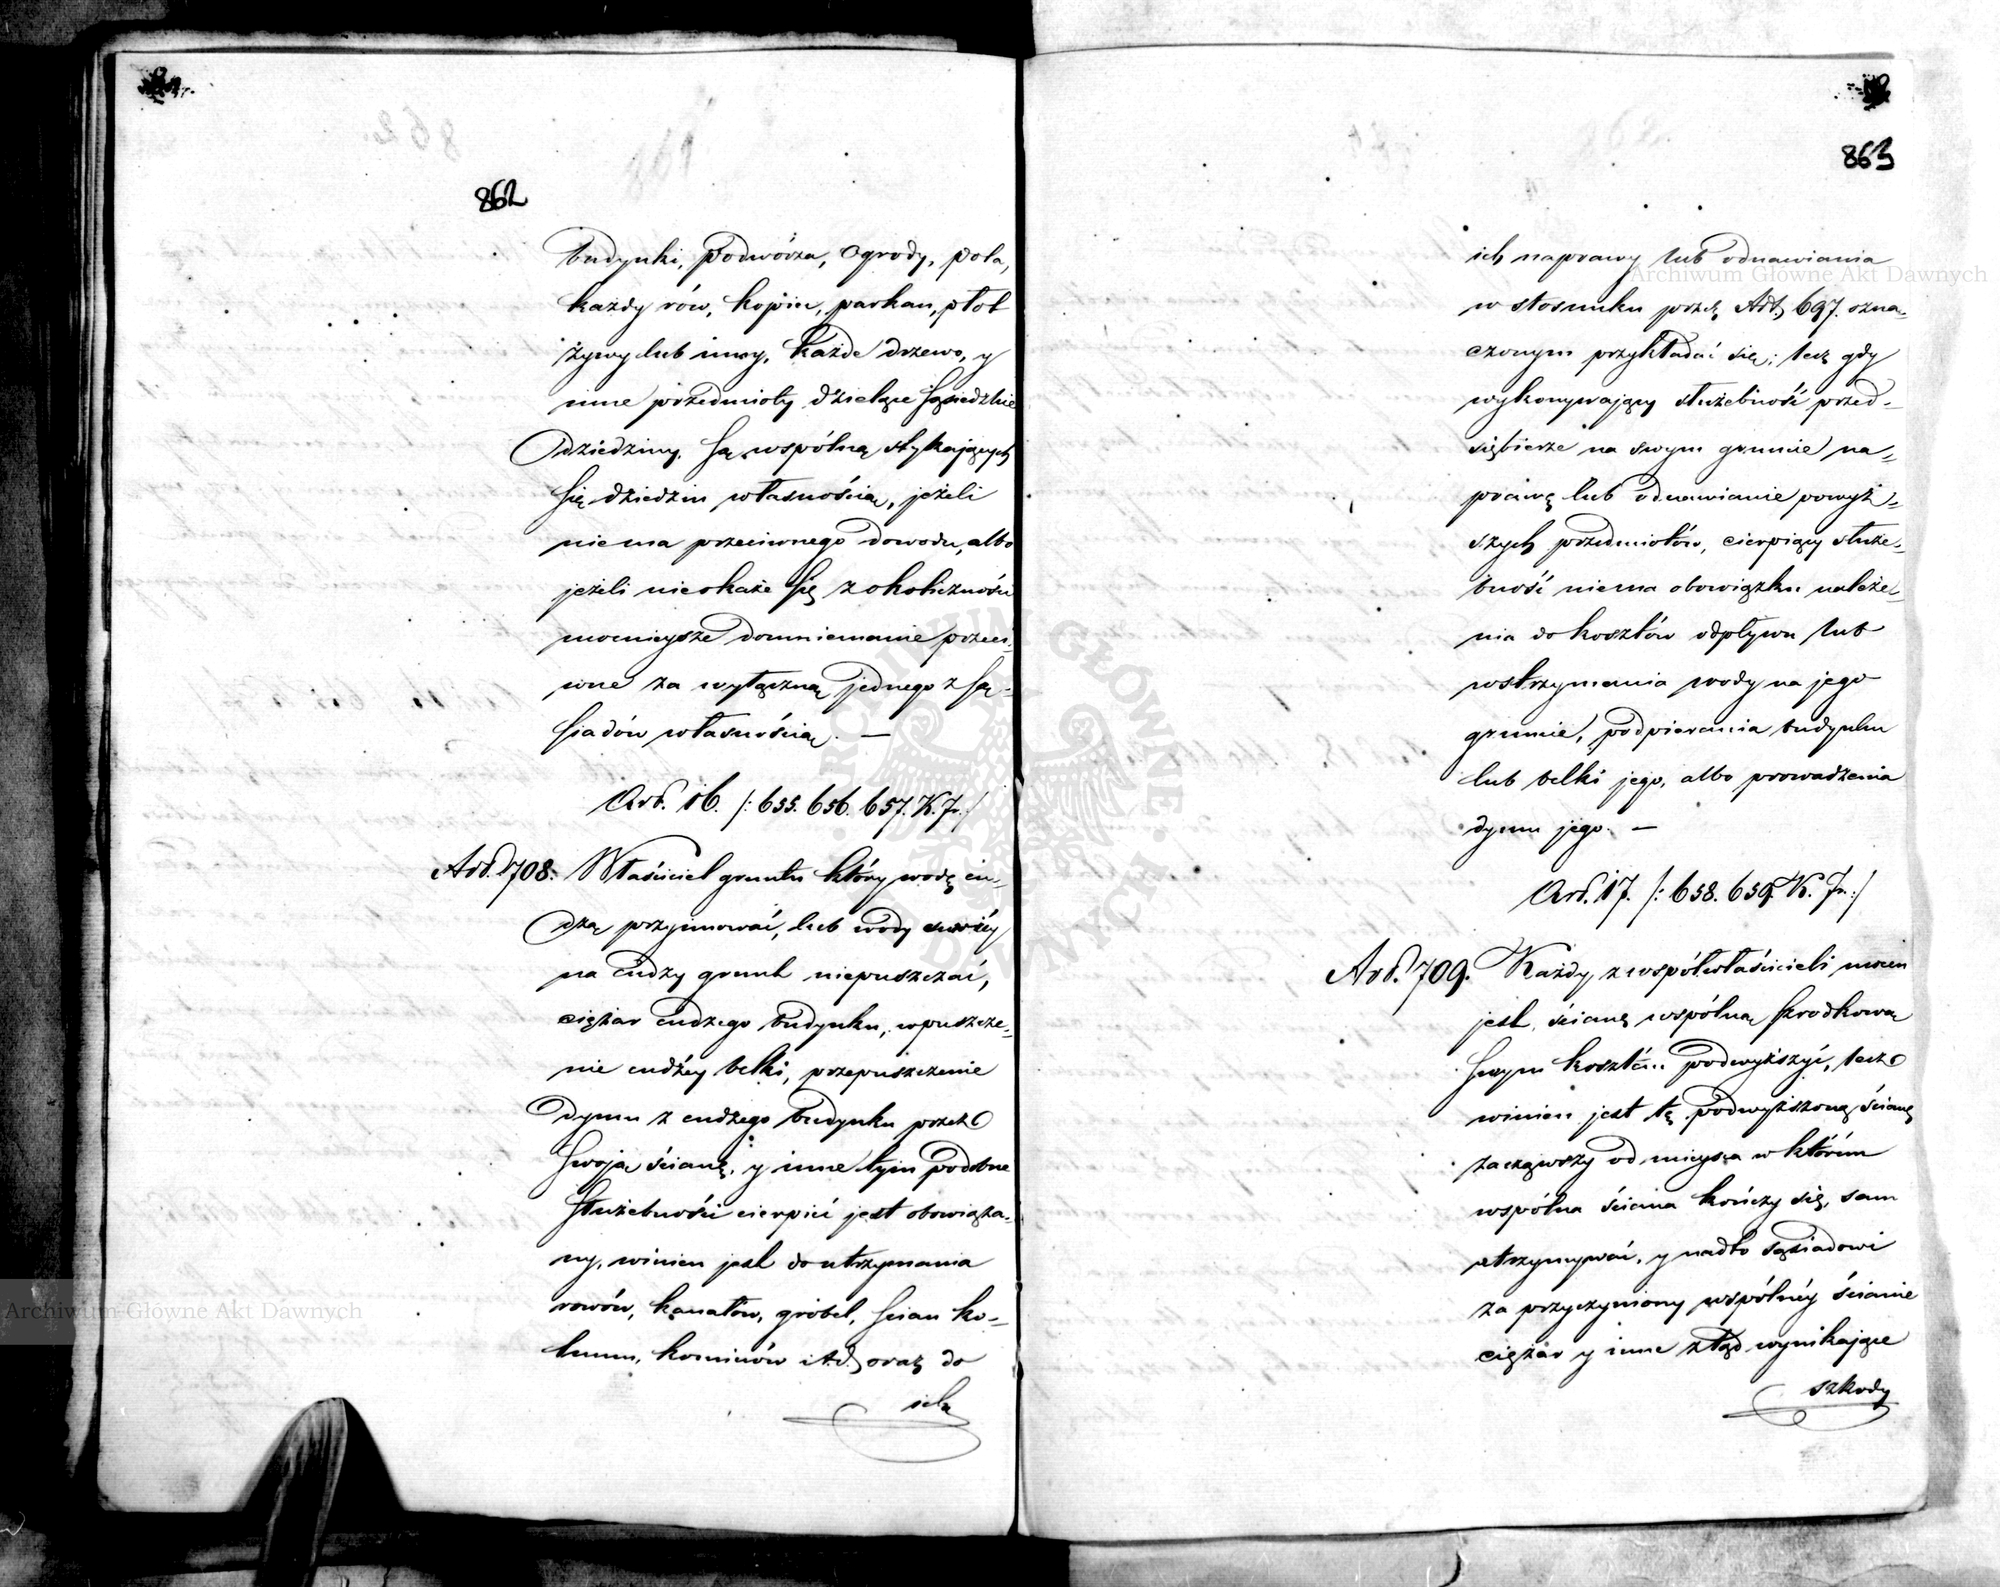 862
budynki, podwórza, Ogrody, pola,
każdy rów, kopiec, parkan, płot
żywy lub inny, każde drzewo, y
inne przedmioty dzielące sąsiedzkie
dziedziny, są wspólną stykających
się dziedzin własnością, jeżeli
niema przeciwnego dowodu, albo
jeżeli nieokaże się z okoliczności
mocnieysze domniemanie przeci-
wne za wyłączną jednego z są-
siadów własnością. —
Art. 16. /: 655. 656. 657. K. Fr. /
Art. 708. Właściciel gruntu który wodę cu-
dzą przyjmować, lub wody swéy
na cudzy grunt niepuszczać,
ciężar cudzego budynku, wpuszcze-
nie cudzéy belki, przepuszczenie
dymu z cudzego budynku przez
swoją ścianę, y inne tym podobne
służebności cierpieć jest obowiąza-
ny, winien jest do utrzymania
rowów, kanałów, gróbel, ścian ko-
lumn, kominów i t. d. oraz do
ich
863
ich naprawy lub odnawiania
w stosunku przez Art. 697. ozna-
czonym przykładać się; lecz gdy
wykonywający służebność przed-
siębierze na swym gruncie na-
prawę lub odnawianie powyż-
szych przedmiotów, cierpiący służe-
bność niema obowiązku należe-
nia do kosztów odpływu lub
wstrzymania wody na jego
gruncie, podpierania budynku
lub belki jego, albo prowadzenia
dymu jego. —
Art. 17. /: 658. 659. K. Fr. :/
Art. 709. Każdy z współwłaścicieli mocen
jest ścianę wspólną środkową
swym kosztem podwyższyć, lecz
winien jest tę podwyższoną ścianę
zacząwszy od mieysca w którém
wspólna ściana kończy się, sam
utrzymywać, y nadto sąsiadowi
za przyczyniony wspólnéy ścianie
ciężar y inne ztąd wynikające
szkody
Archiwum Główne Akt Dawnych
Archiwum Główne Akt Dawnych